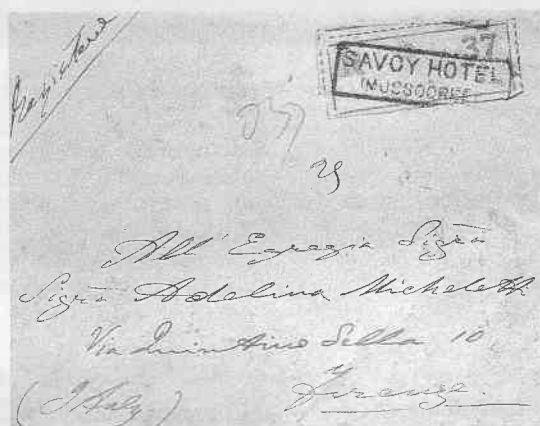 Registered
37
SAVOY HOTEL
MUSSOORIE
All' Egregia Sigra
Sigra Adelina Micheletti
Via Quintino Sella 10
Firenze.
(Italy)